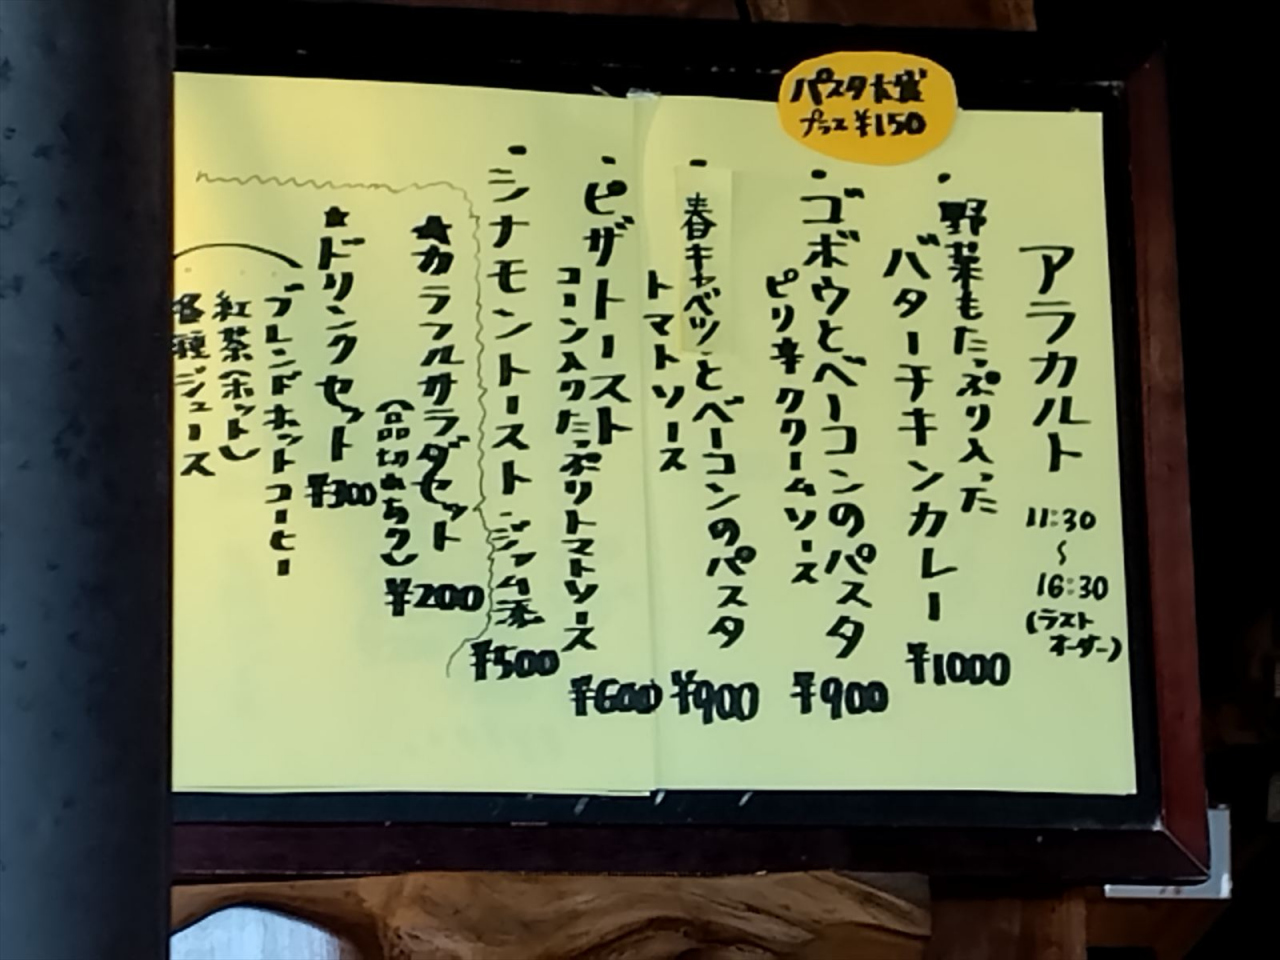 パスタ大盛
プラス ¥150
アラカルト
11:30
~
16:30
(ラスト
オーダー)
・野菜もたっぷり入った
バターチキンカレー
¥1000
・ゴボウとベーコンのパスタ
ピリ辛クリームソース
¥900
・春キャベツとベーコンのパスタ
トマトソース
¥900
・ピザトースト
コーン入りたっぷりトマトソース
¥600
・シナモントースト・ジャム添
¥500
★カラフルサラダセット
(品切めちり)
¥200
★ドリンクセット
¥300
ブレンドホットコーヒー
紅茶(ホット)
各種ジュース